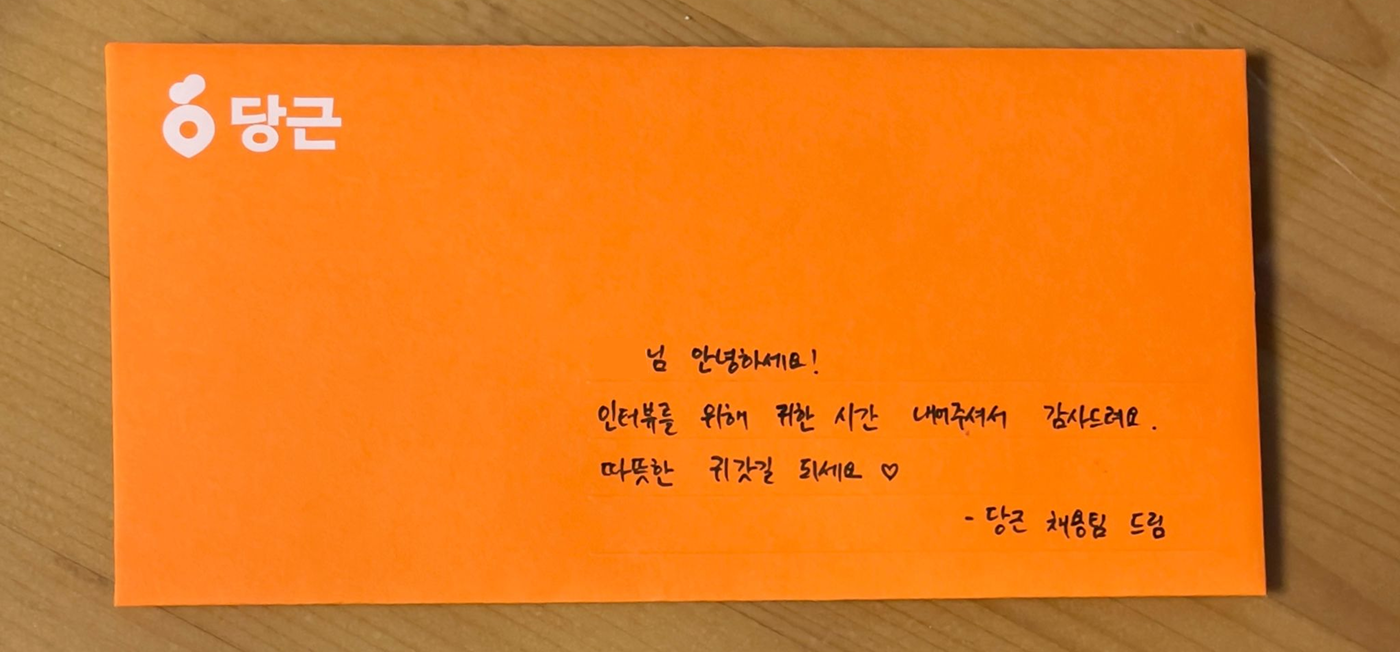 당근
님 안녕하세요!
인터뷰를 위해 귀한 시간 내어주셔서 감사드려요.
따뜻한 귀갓길 되세요 ♡
- 당근 채용팀 드림